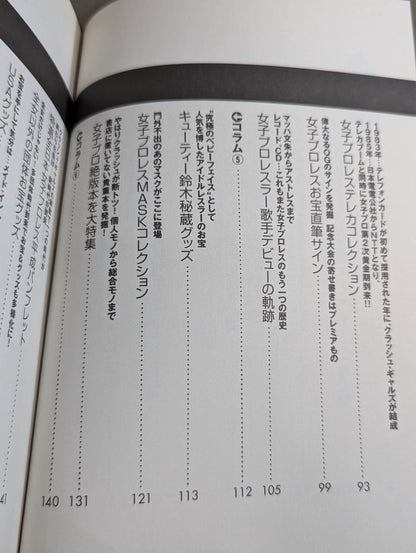 1983年…テレフォンカードが初めて採用された年に、クラッシュ・ギャルズが結成
1985年…日本電電公社からNTTとなり、
テレカブームと同時に女子プロ第2次黄金期到来!!
女子プロレステレカコレクション 93
偉大なるOGのサインを発掘 記念大会の寄せ書きはプレミアもの
女子プロレスお宝直筆サイン 99
マッハ文朱からアストレスまで
レコード、CD…これもまた女子プロレスのもう一つの歴史
女子プロレスラー歌手デビューの軌跡 105
コラム⑤ 112
“究極のベビーフェイス”として
人気を博したアイドルレスラーのお宝
キューティー鈴木秘蔵グッズ 113
門外不出のあのマスクがここに登場
女子プロレスMASKコレクション 121
やはりクラッシュが断トツ…個人モノから総合モノまで
書店に置いてない貴重本を発掘!
女子プロ絶版本を大特集 131
コラム⑥ 140